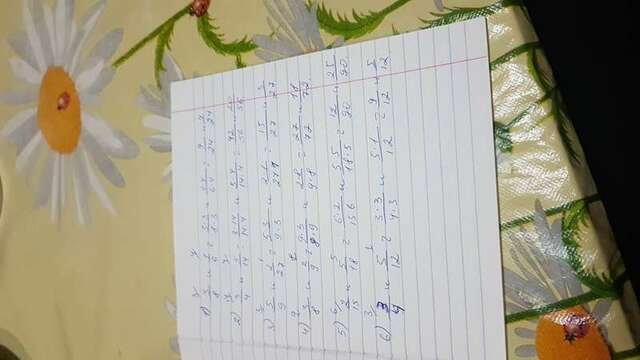 1) 3/8 и 1/6 = 3·3/8·3 и 1·4/6·4 = 9/24 и 4/24
2) 3/4 и 5/14 = 3·14/14·4 и 5·4/14·4 = 42/56 и 20/56
3) 5/9 и 1/27 = 5·3/9·3 и 2·1/27·1 = 15/27 и 2/27
4) 3/8 и 2/9 = 9·3/8·9 и 2·8/9·8 = 27/72 и 18/72
5) 2/15 и 5/18 = 6·2/15·6 и 5·5/18·5 = 12/90 и 25/90
6) 3/4 и 5/12 = 3·3/4·3 и 5·1/12 = 9/12 и 5/12